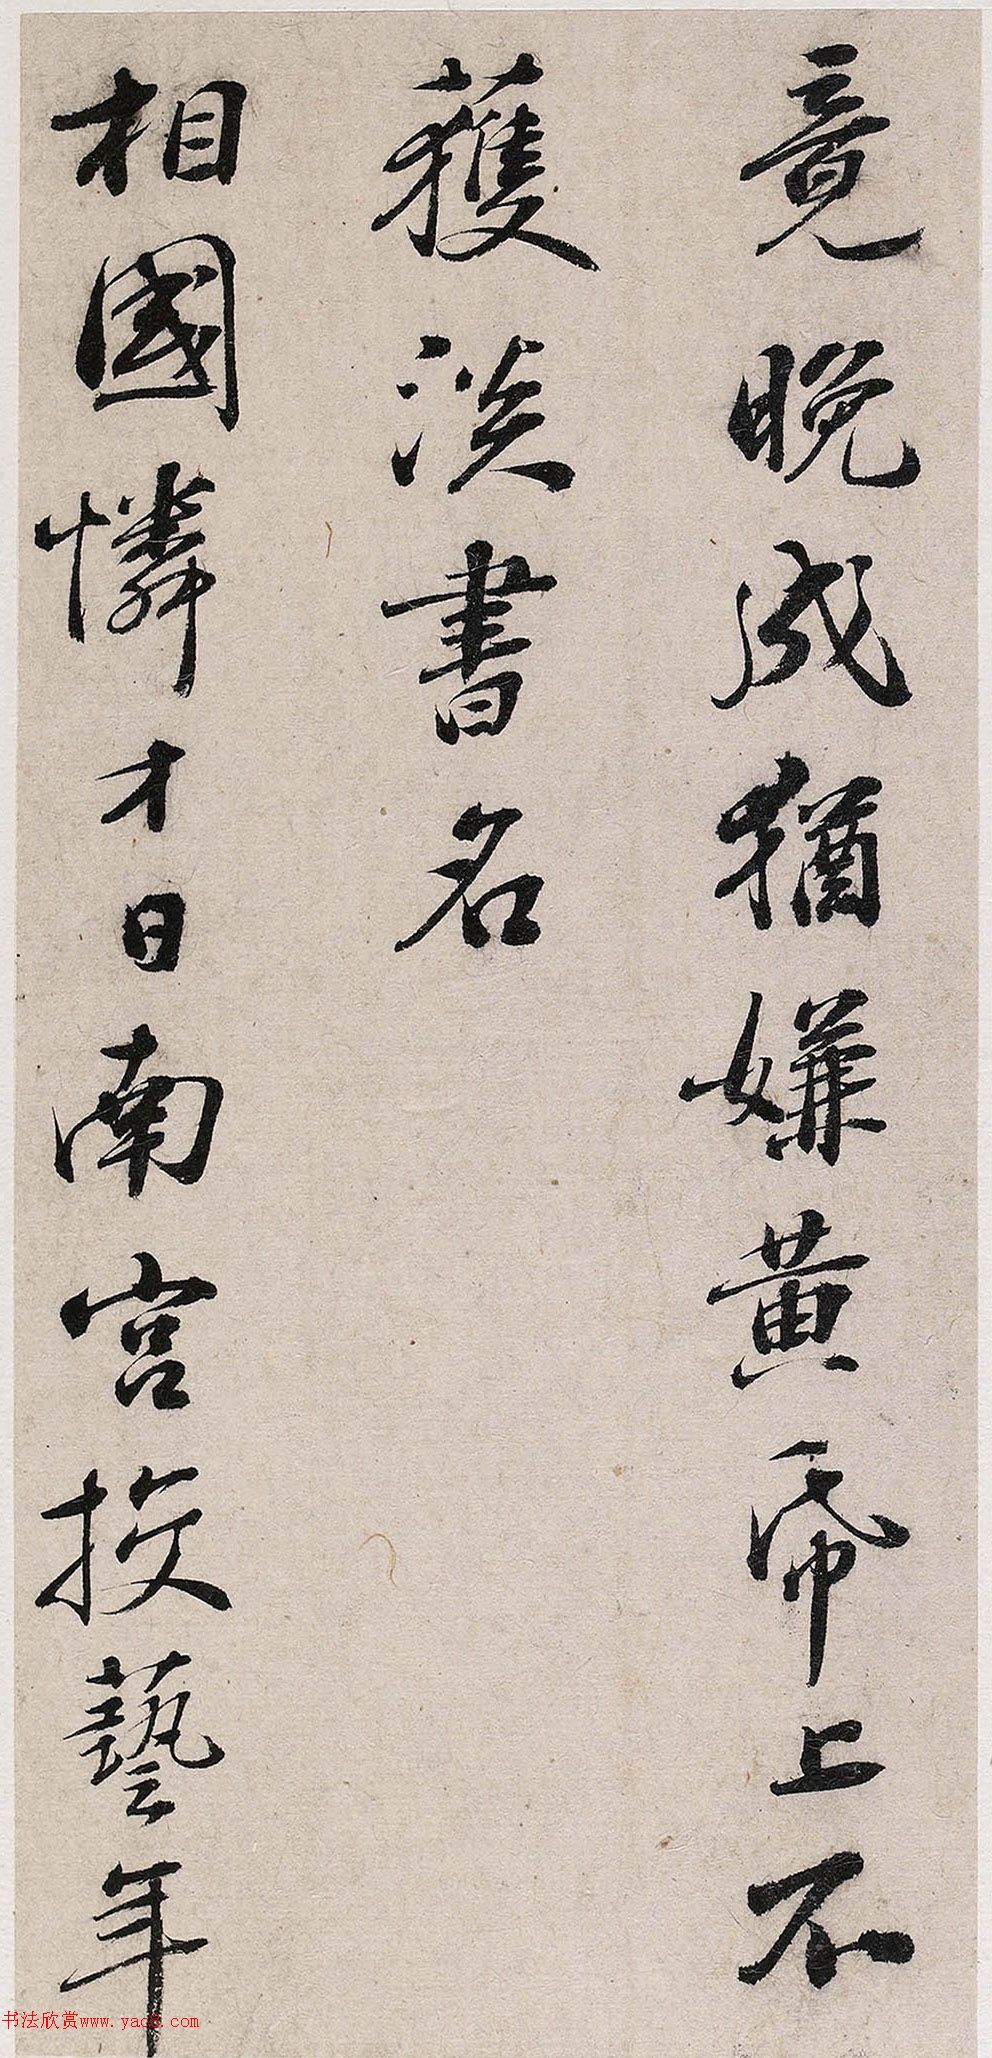 竟晚成猶嫌黃紙上不
獲淡書名
相國憐才日南宮投藝年
书法欣赏www.yac8.com